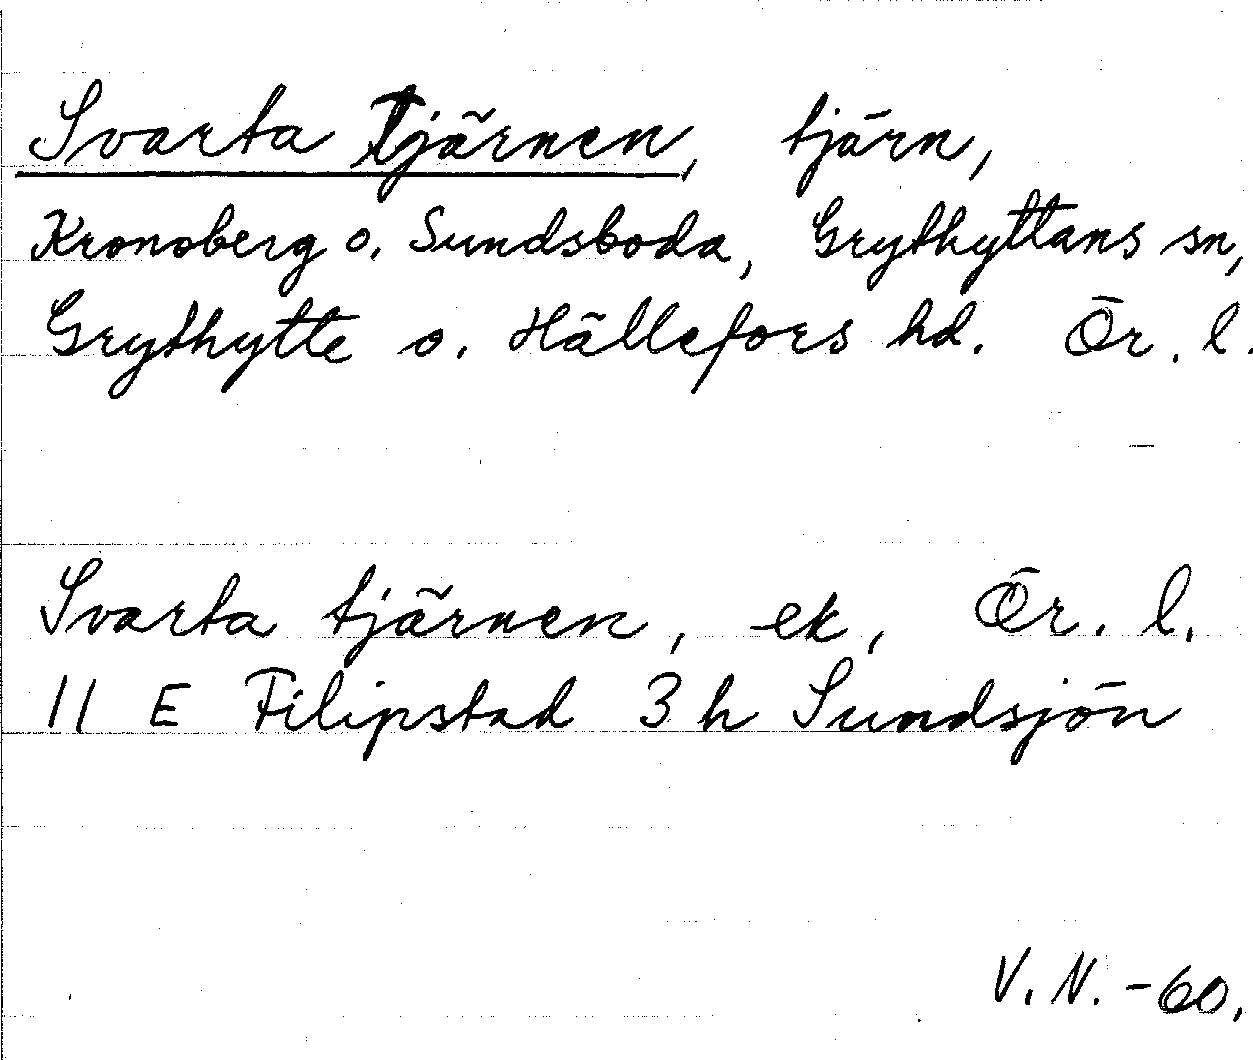 Svarta Tjärnen, tjärn,
Kronoberg o. Sundsboda, Grythyttans sn,
Grythytte o. Hällefors hd. Ör. l.
Svarta tjärnen, ek, Ör. l.
11 E Filipstad 3 h Sundsjön
V. N. -60.